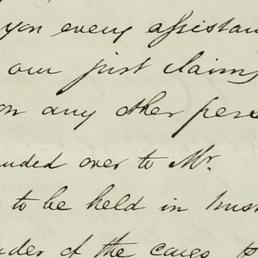 you every assistan
our just claims
on any other pers
nded over to Mr.
to be held in trus
nder of the cargo